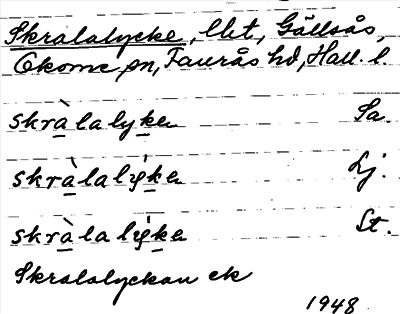 Skralalycke, lht, Gällsås,
Okome sn, Faurås hd, Hall. l.
skràlalyken Sa.
skràlalyken Lj.
skràlalyken St.
Skralalyckan ek
1948